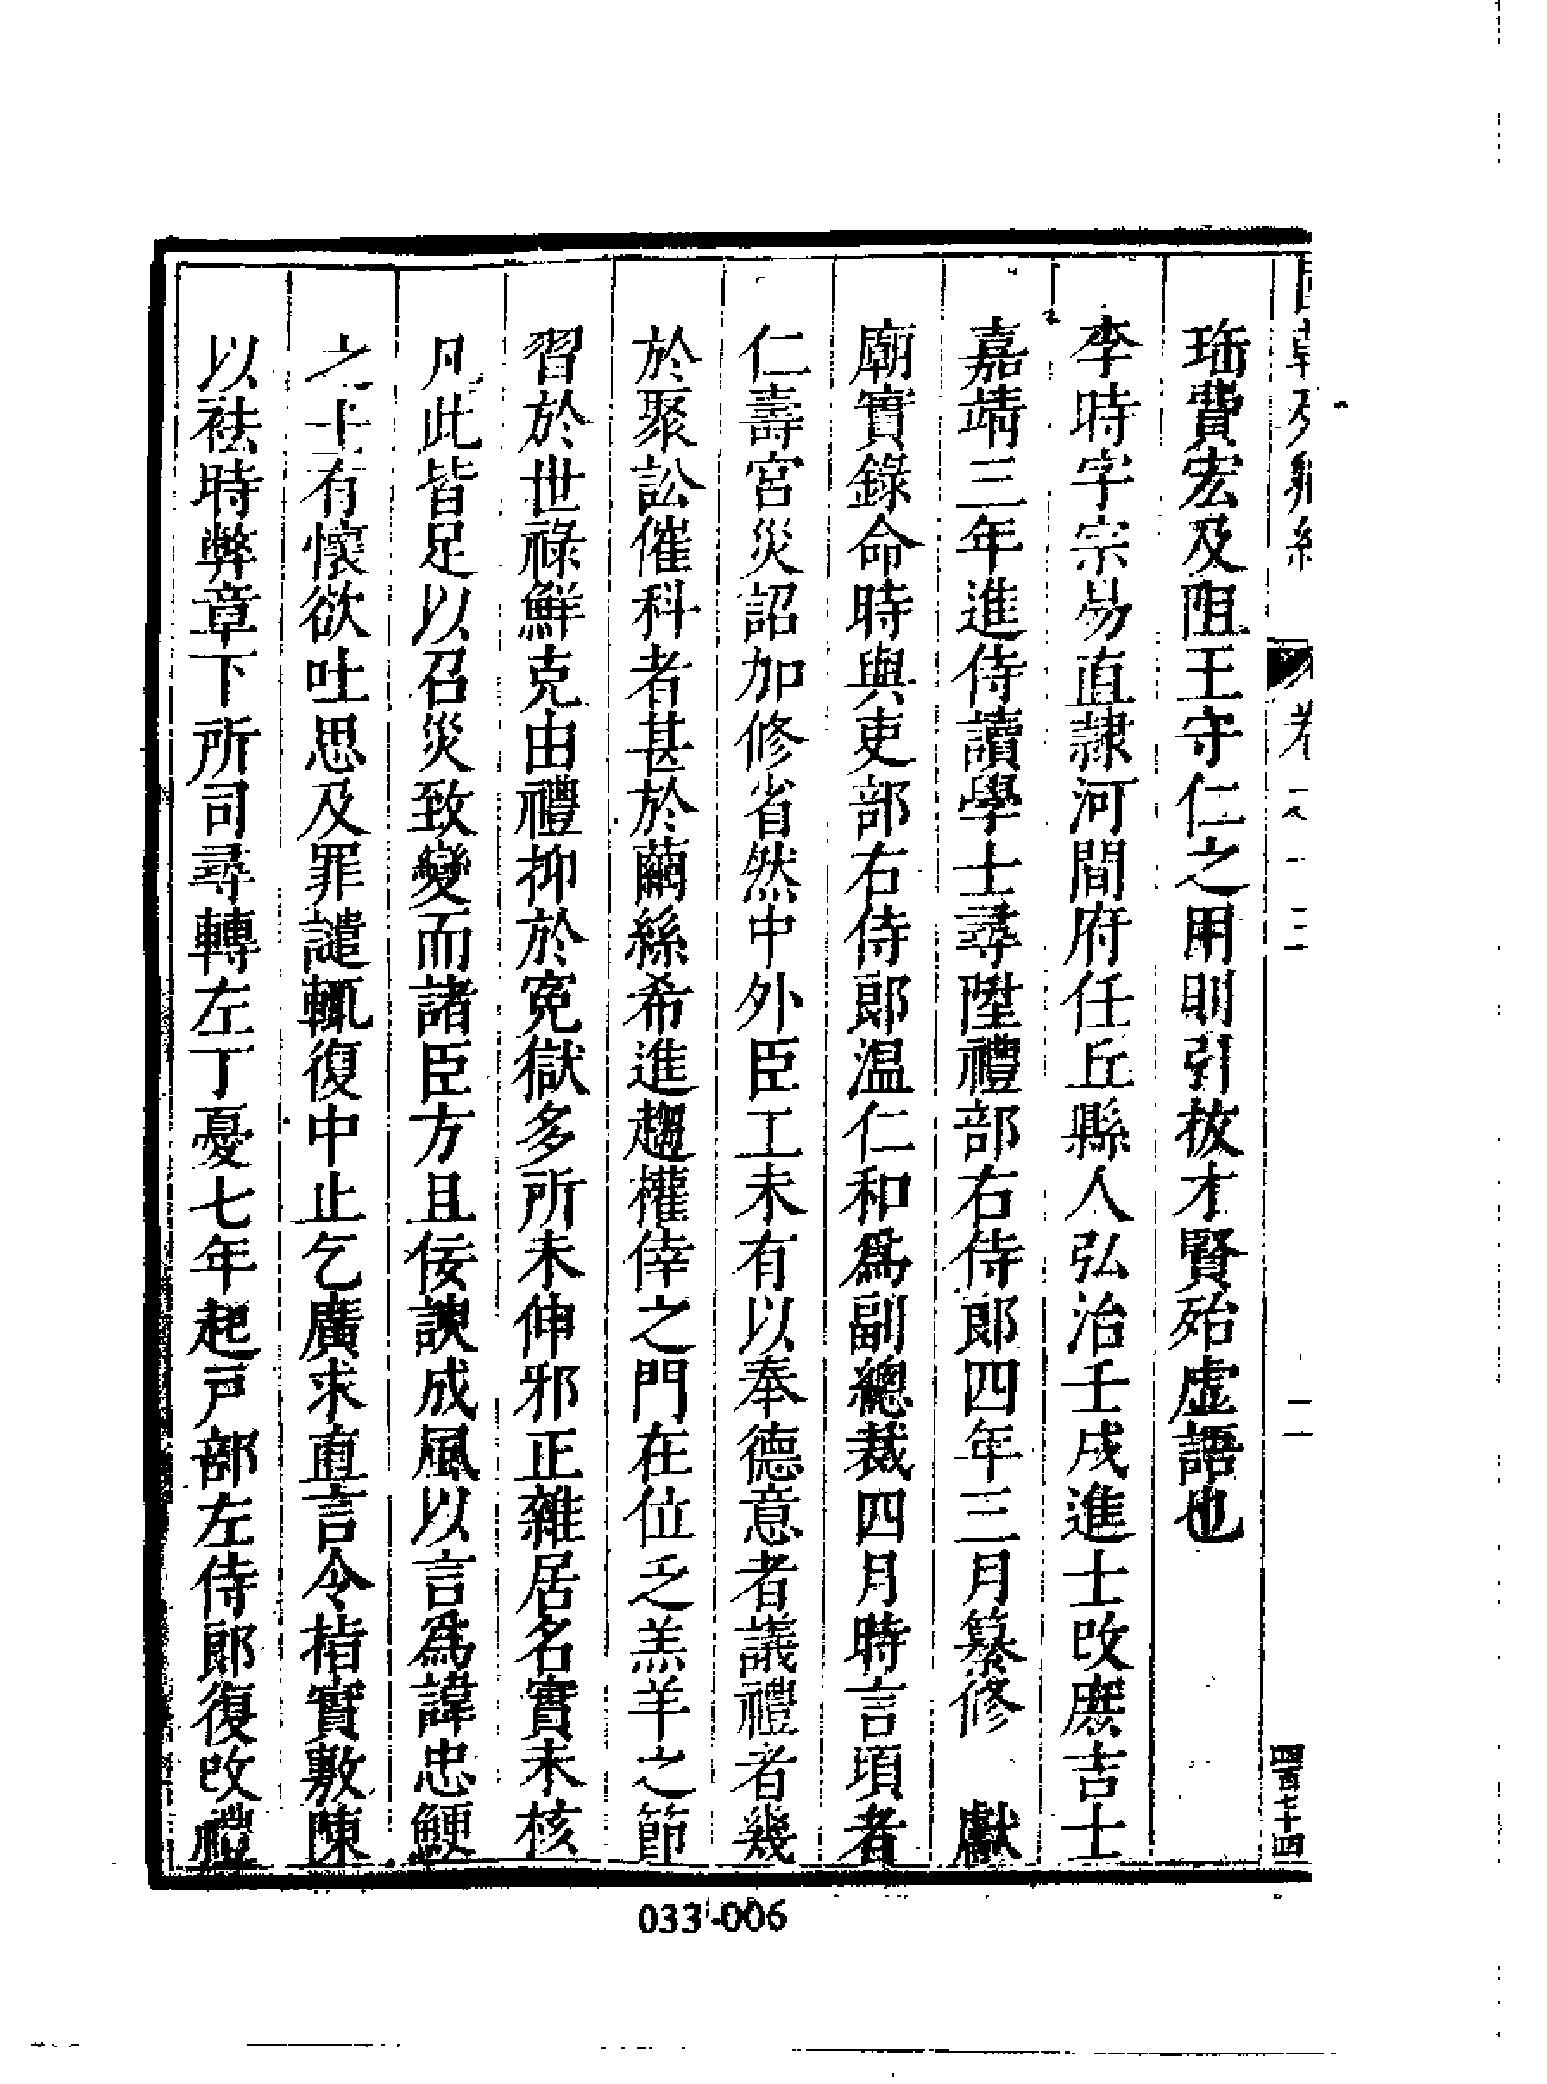 卷之十三
二
四百七十四
珤費宏及阻王守仁之用則引拔才賢殆虛語也
李時字宗易直隸河間府任丘縣人弘治壬戌進士改庶吉士
嘉靖三年進侍讀學士尋陞禮部右侍郎四年三月纂修 獻
廟實錄命時與吏部右侍郎温仁和爲副總裁四月時言頃者
仁壽宮災詔加修省然中外臣工未有以奉德意者議禮者幾
於聚訟催科者甚於繭絲希進趨權倖之門在位乏羔羊之節
習於世祿鮮克由禮抑於寃獄多所未伸邪正雜居名實未核
凡此皆足以召災致變而諸臣方且佞諛成風以言爲諱忠鯁
之士有懷欲吐思及罪譴輒復中止乞廣求直言令指實敷陳
以袪時弊章下所司尋轉左丁憂七年起戸部左侍郎復改禮
033-006